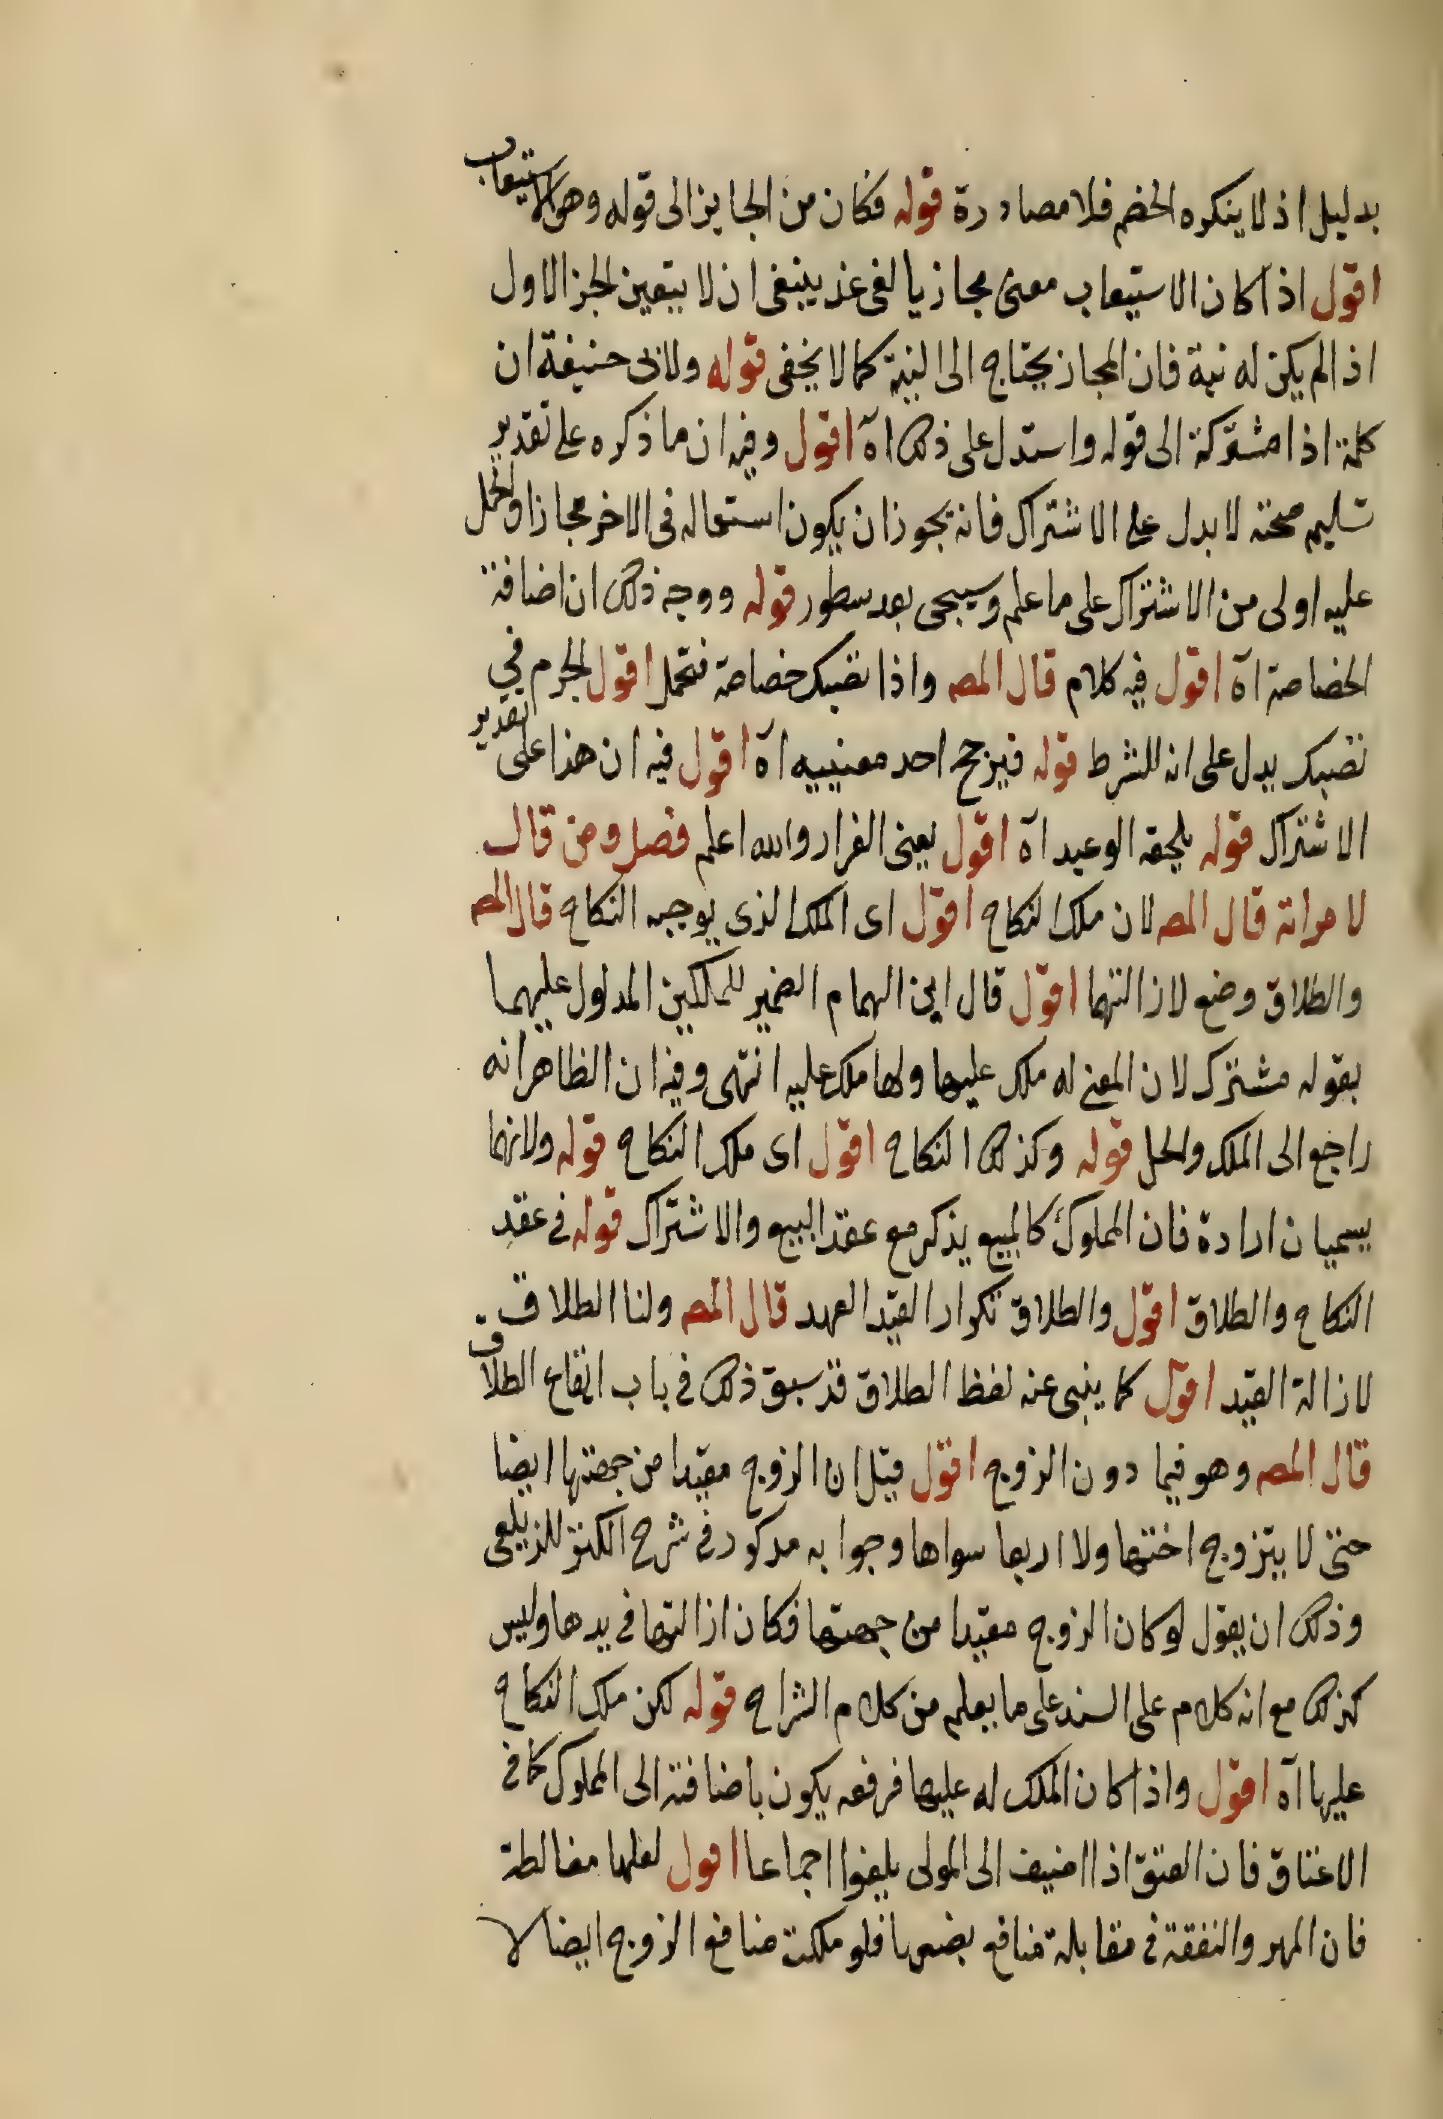 بدليل اذ لا ينكره الخصم فلا مصادرة قوله فكان من الجايز الى قوله وهو الاستيعاب
اقول اذا كان الاستيعاب معنى مجازيا لفى غد ينبغى ان لا يتعين الجز الاول
اذ الم يكن له نية فان المجاز يحتاج الى النية كما لا يخفى قوله ولابى حنيفة ان
كلمة اذا مشتركة الى قوله واستدل على ذلك اه اقول وفيه ان ما ذكره على تقدير
تسليم صحته لا يدل على الاشتراك فانه يجوز ان يكون استعماله فى الاخر مجازا والحمل
عليه اولى من الاشتراك على ما علم وسيجى بعد سطور قوله ووجه ذلك ان اضافة
الخصاصة اه اقول فيه كلام قال المصه واذا تصبك خصاصة فتحمل اقول الجرم في
تصبك يدل على انه للشرط قوله فيرجح احد معنييه اه اقول فيه ان هذا على تقدير
الاشتراك قوله يلحقه الوعيد اه اقول يعنى الفرار والله اعلم فصل ومن قال
لامراته قال المصه لان ملك النكاح اقول اى الملك الذى يوجبه النكاح قال المصه
والطلاق وضع لازالتهما اقول قال ابن الهمام الضمير للمالكين المدلول عليهما
بقوله مشترك لان المعنى له ملك عليها ولها ملك عليه انتهى وفيه ان الظاهر انه
راجع الى الملك والحل قوله وكذلك النكاح اقول اى ملك النكاح قوله ولانهما
يسميان ارادة فان المملوك كالمبيع يذكر مع عقد البيع والاشتراك قوله فى عقد
النكاح والطلاق اقول والطلاق تكرار القيد العهد قال المصه ولنا الطلاق
لازالة القيد اقول كما ينبى عنه لفظ الطلاق قد سبق ذلك فى باب ايقاع الطلاق
قال المصه وهو فيها دون الزوج اقول قيل ان الزوج مقيدا من جهتها ايضا
حتى لا يتزوج اختها ولا اربعا سواها وجوابه مذكور فى شرح الكنز للزيلعى
وذلك ان يقول لو كان الزوج مقيدا من جهتها فكان ازالتها فى يدها وليس
كذلك مع انه كلام على السند على ما يعلم من كلام الشراح قوله لكن ملك النكاح
عليها اه اقول واذا كان الملك له عليها فرفعه يكون باضافته الى المملوك كما فى
الاعتاق فان العتق اذا اضيف الى المولى يلغوا اجماعا اقول لعلها مغالطة
فان المهر والنفقة فى مقابلة منافع بضعها فلو ملكت منافع الزوج ايضا لا